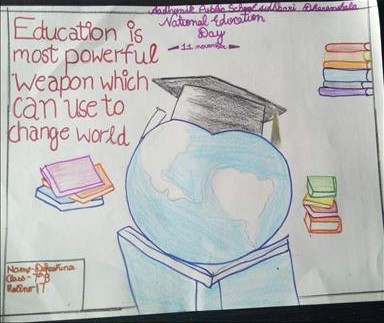 Aadhunik Public School sidhbari Dharamshala
National Education
Day
11 november
Education is
most powerful
weapon which
can use to
change world
Name-
Class- 7th B
Rollno-17